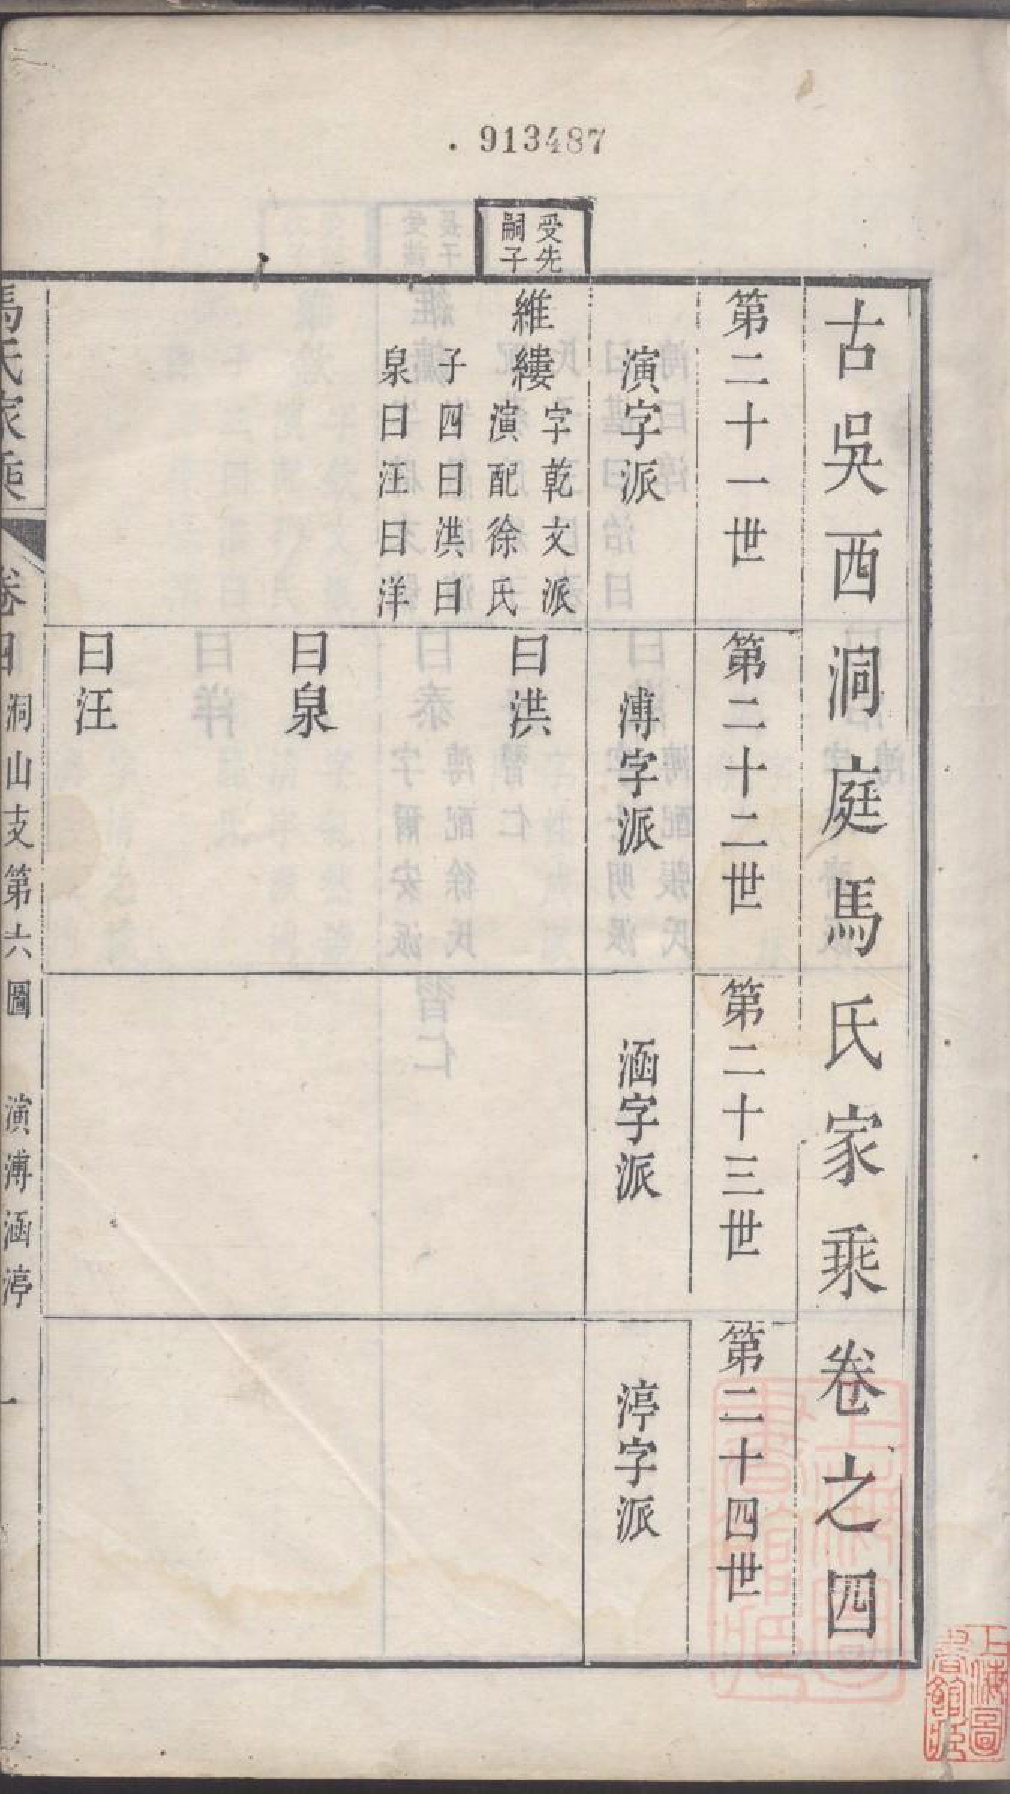 913487
古吳西洞庭馬氏家乘卷之四
第二十一世
第二十二世
第二十三世
第二十四世
演字派
溥字派
涵字派
渟字派
受先
嗣子
維縷
字乾文派
演配徐氏
子四曰洪曰
泉曰汪曰洋
曰洪
曰泉
曰汪
馬氏家乘
卷四
洞山支第六圖
演溥涵渟
一
上海圖
書館藏
上海圖
書館藏